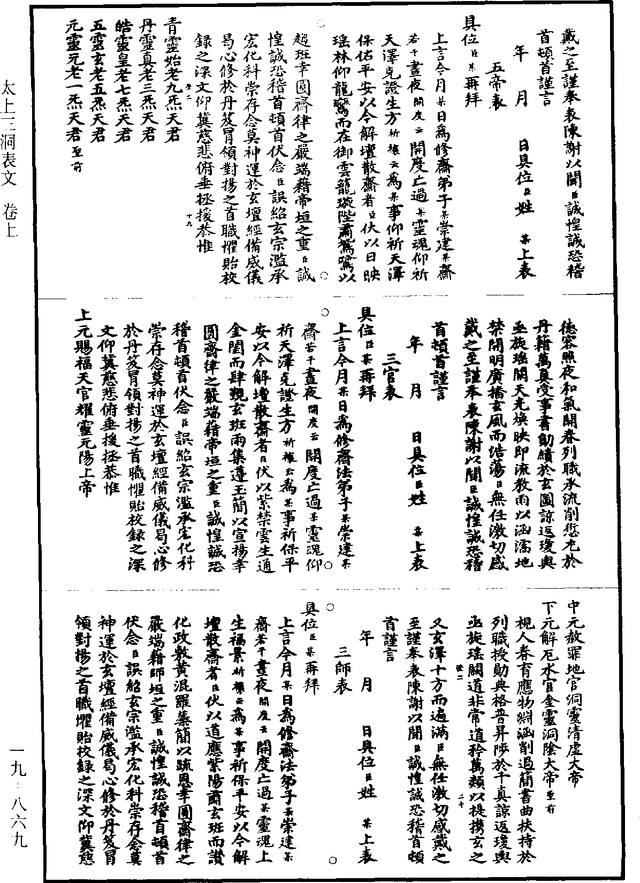 戴之至謹奉表陳謝以聞臣誠惶誠恐稽
首頓首謹言
年 月 日具位臣姓 某上表
五帝表
具位臣某再拜
上言今月某日為修齋弟子某崇建某齋
若干晝夜開度云開度亡過某靈魂仰祈
天澤克證生方祈禳云為某事仰祈天澤
保佑平安以今解壇散齋者臣伏以日映
瑤林仰龍鸞而在御雲龍璇陛肅鴛鷺以
超班幸圓齋律之嚴端藉帝垣之重臣誠
惶誠恐稽首頓首伏念臣誤紹玄宗濫承
宏化科崇存念莫神運於玄壇經備威儀
曷心修於丹笈冒領對揚之首職懼貽校
錄之深文仰冀慈悲俯垂拯援恭惟
十九
青靈始老九炁天君
丹靈真老三炁天君
皓靈皇老七炁天君
五靈玄老五炁天君
元靈元老一炁天君至前
德容照夜和氣開春列職承流削愆尤於
丹籍萬真受事書勛績於玄圖諒返瓊輿
丞旋瑤闕天光煥映即流教雨以涵濡地
禁開明廣播玄風而浩蕩臣無任激切感
戴之至謹奉表陳謝以聞臣誠惶誠恐稽
首頓首謹言
年 月 日具位臣姓 某上表
三官表
具位臣某再拜
上言今月某日為修齋法弟子某崇建某
齋若干晝夜開度云開度亡過某靈魂仰
祈天澤克證生方祈禳云為某事祈保平
安以今解壇散齋者臣伏以紫禁雲生通
金閨而肆覲玄班雨集遵玉簡以宣揚幸
圓齋律之嚴端藉帝垣之重臣誠惶誠恐
稽首頓首伏念臣誤紹玄宗濫承宏化科
崇存念莫神運於玄壇經備威儀曷心修
於丹笈冒領對揚之首職懼貽校錄之深
文仰冀慈悲俯垂拯援恭惟
上元賜福天官耀靈元陽上帝
中元赦罪地官洞靈清虛大帝
下元解厄水官金靈洞陰大帝至前
視人春育應物淵涵削過簡書曲扶持於
列職授勛典格普昇陟於千真諒返瓊輿
丞旋瑤闕道非常道矜萬類以提攜玄之
二十
又玄澤十方而遍滿臣無任激切感戴之
至謹奉表陳謝以聞臣誠惶誠恐稽首頓
首謹言
年 月 日具位臣姓 某上表
三師表
具位臣某再拜
上言今月某日為修齋法弟子某崇建某
齋若干晝夜開度云開度亡過某靈魂上
生福景祈禳云為某事祈保平安以今解
壇散齋者臣伏以道應紫陽肅玄班而讚
化政敷黃混羅蘂簡以疏恩幸圓齋律之
嚴端藉師垣之重臣誠惶誠恐稽首頓首
伏念臣誤紹玄宗濫承宏化科崇存念莫
神運於玄壇經備威儀曷心修於丹笈冒
領對揚之首職懼貽校錄之深文仰冀慈
太上三洞表文 卷上
一九·八六九